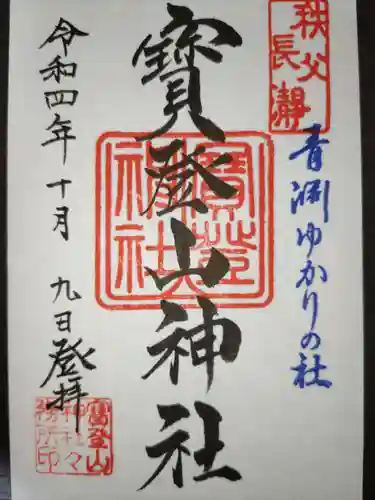 秩父
長瀞
青淵ゆかりの社
寳登山神社
寳登山神社
令和四年十月九日登拝
寳登山
神社々
務所印